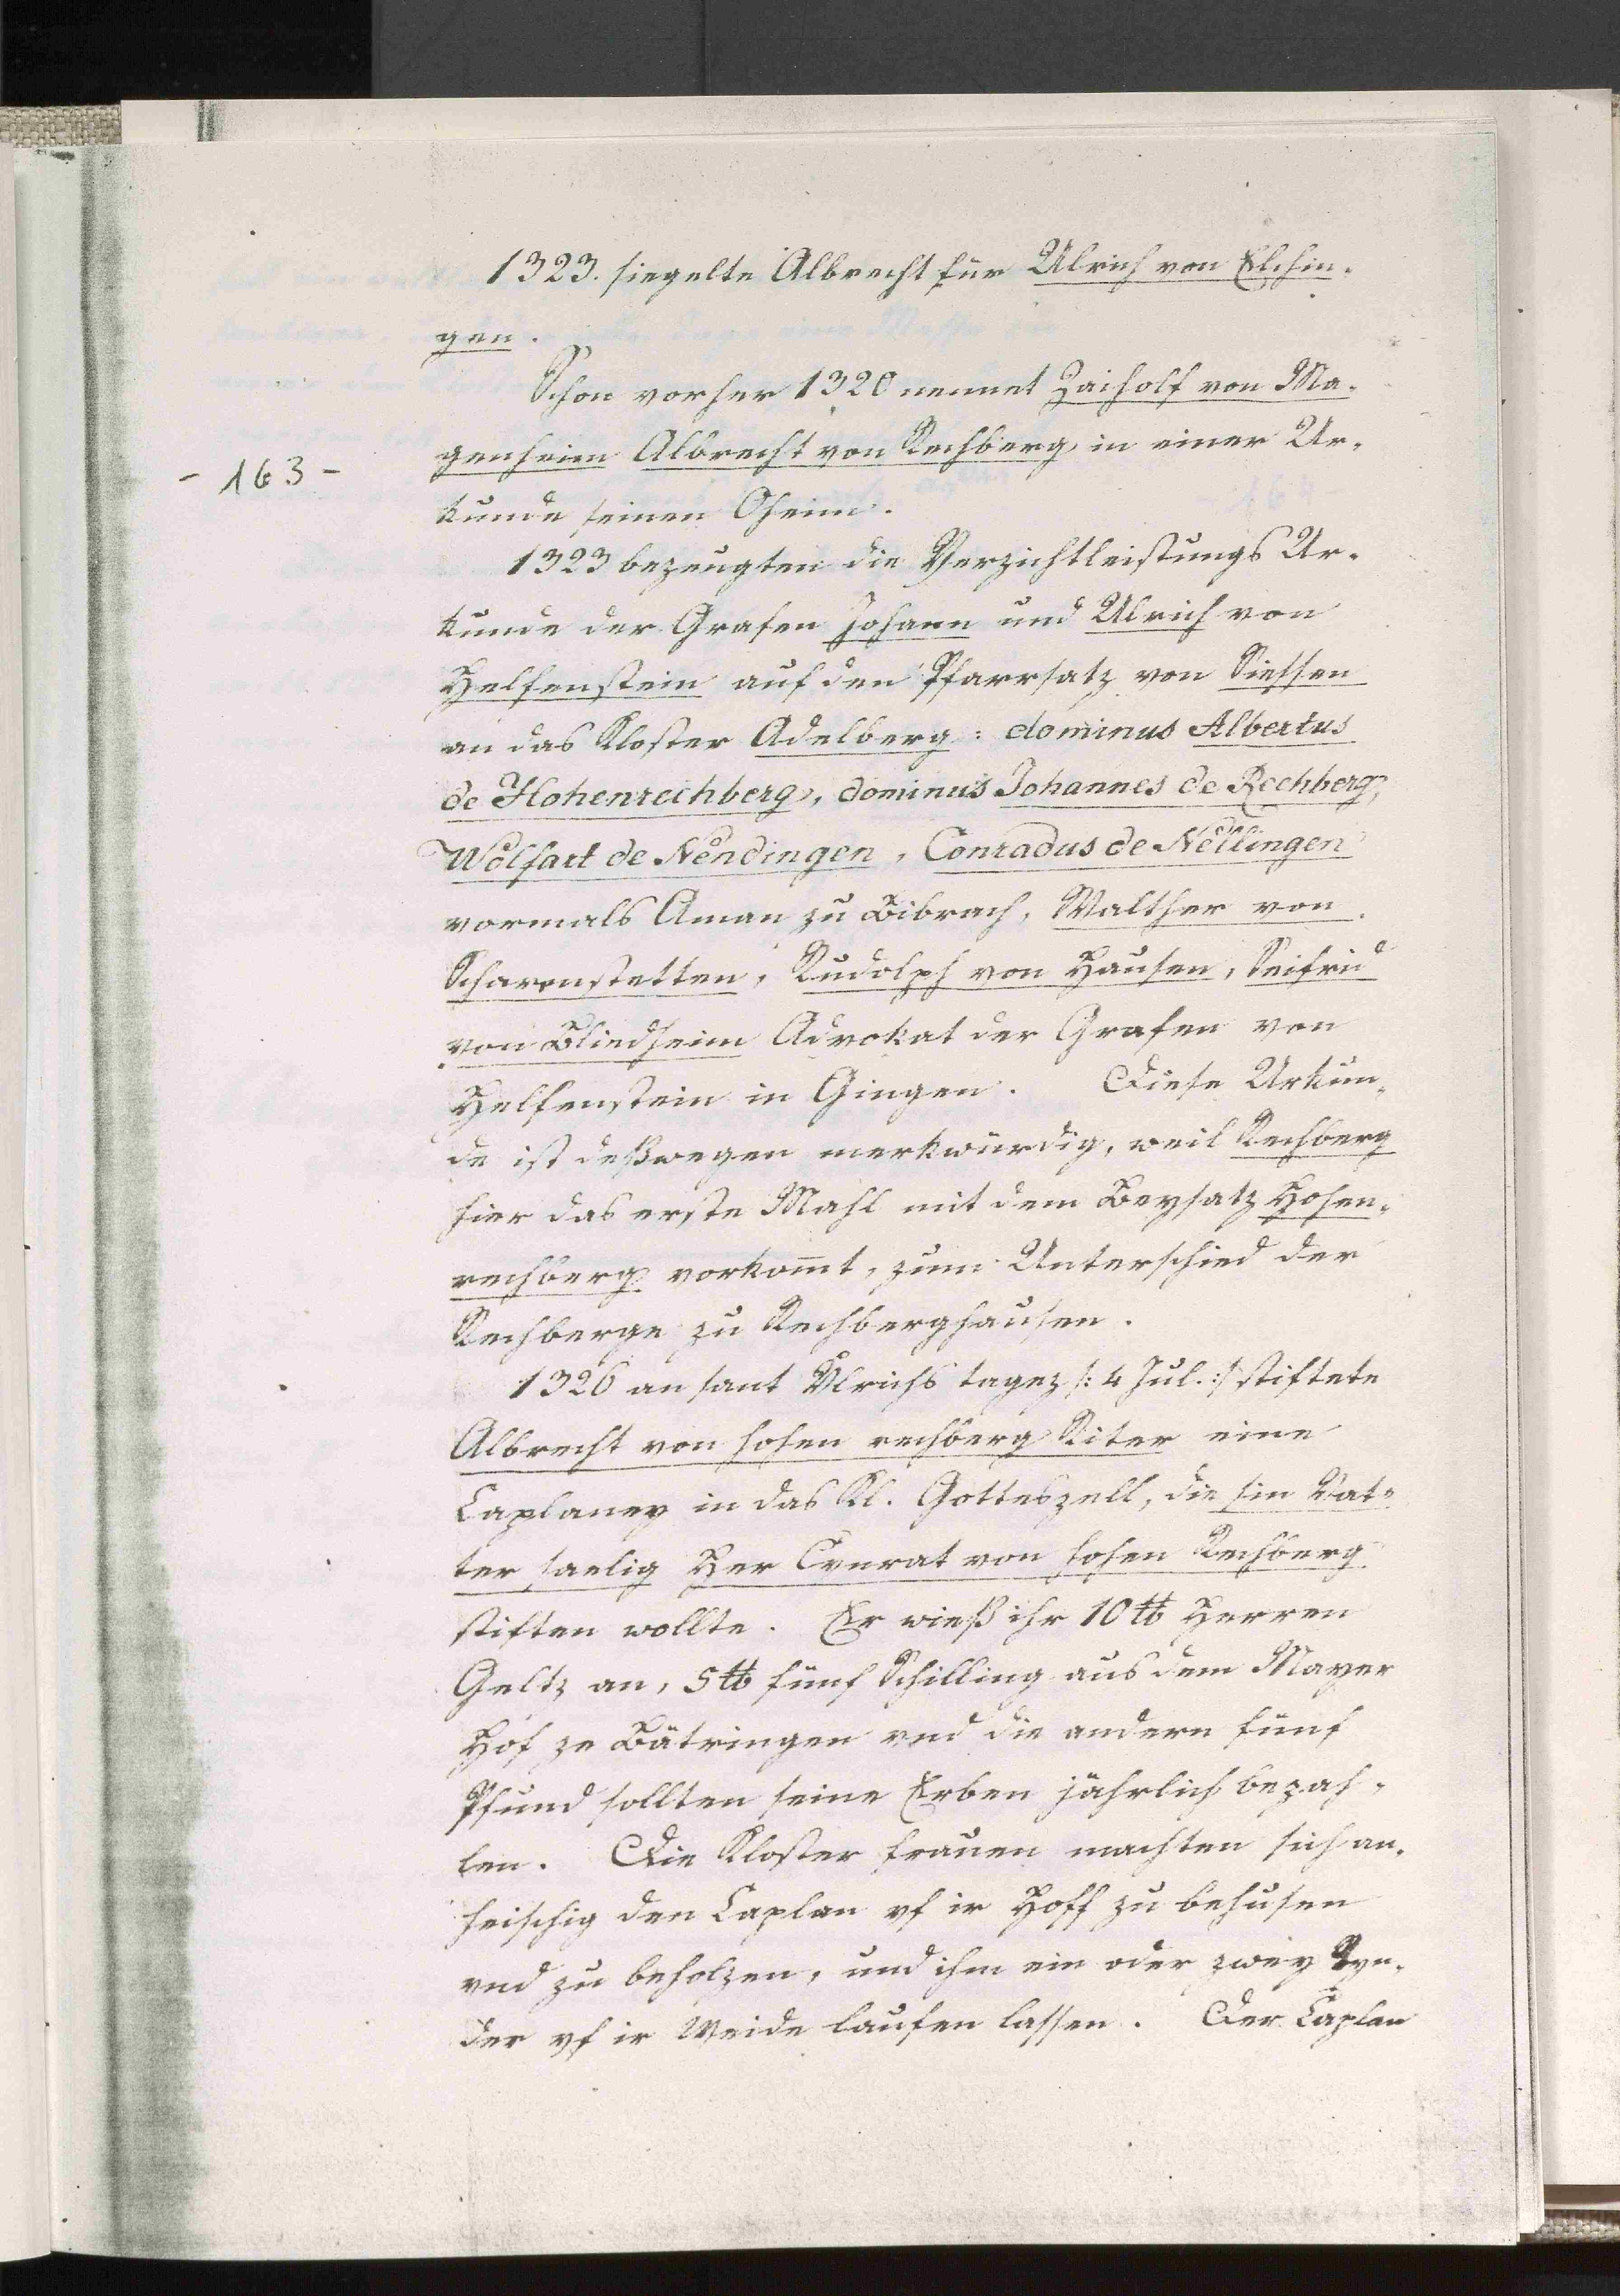 1323. siegelte Albrecht für Ulrich von Elchin-
gen.
Schon vorher 1320 nennet Zaisolf von Ma-
genheim Albrecht von Rechberg in einer Ur-
- 163 -
kunde seinen Oheim.
1323 bezeugten die Verzichtleistungs Ur-
kunde der Grafen Johann und Ulrich von
Helfenstein auf den Pfarrsatz von Siessen
an das Kloster Adelberg: dominus Albertus
de Hohenrechberg, dominus Johannes de Rechberg,
Wolfart de Nendingen, Conradus de Nellingen
vormals Aman zu Bibrach, Walther von
Scharenstetten, Rudolph von Hausen, Seifrid
von Bliedheim Advokat der Grafen von
Helfenstein in Gingen. Diese Urkun-
de ist deßwegen merkwürdig, weil Rechberg
hier das erste Mahl mit dem Beysatz Hohen-
rechberg vorkom̄t, zum Unterschied der
Rechberge zu Rechberghausen.
1326 an sant Vlrichs tagez /: 4 Jul. :/ stiftete
Albrecht von hohen rechberg Riter eine
Caplaney in das Kl. Gotteszell, die sin Vat-
ter saelig Her Cvnrat von hohen Rechberg
stiften wollte. Er wieß ihr 10 ℔ Herren
Geltz an, 5 ℔ fünf Schilling aus dem Mayer
Hof ze Bätringen vnd die andern fünf
Pfund sollten seine Erben jährlich bezah-
len. Die Kloster frauen machten sich an-
heischig den Caplan vf ir Hoff zu behusen
vnd zu beholzen, und ihm ein oder zwey Ryn-
der vf ir Weide laufen lassen. Der Caplan